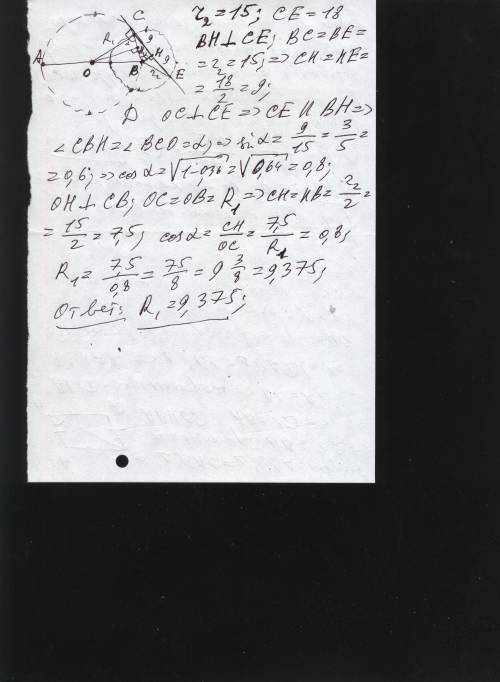 r₂=15; CE=18
BH⊥CE; BC=BE=
=r₂=15;⇒CH=HE=
=18/2=9;
OC⊥CE⇒CE ∥ BH⇒
∠CBH=∠BCO=α;⇒sinα=9/15=3/5=
=0,6;⇒cosα=√1-0,36=√0,64=0,8;
OH⊥CB; OC=OB=R₁⇒CH=HB=r₂/2=
=15/2=7,5; cosα=CH/OC=7,5/R₁=0,8;
R₁=7,5/0,8=75/8=9 3/8=9,375;
Ответ: R₁=9,375;
A
O
B
C
E
H
R₁
r₂
9
9